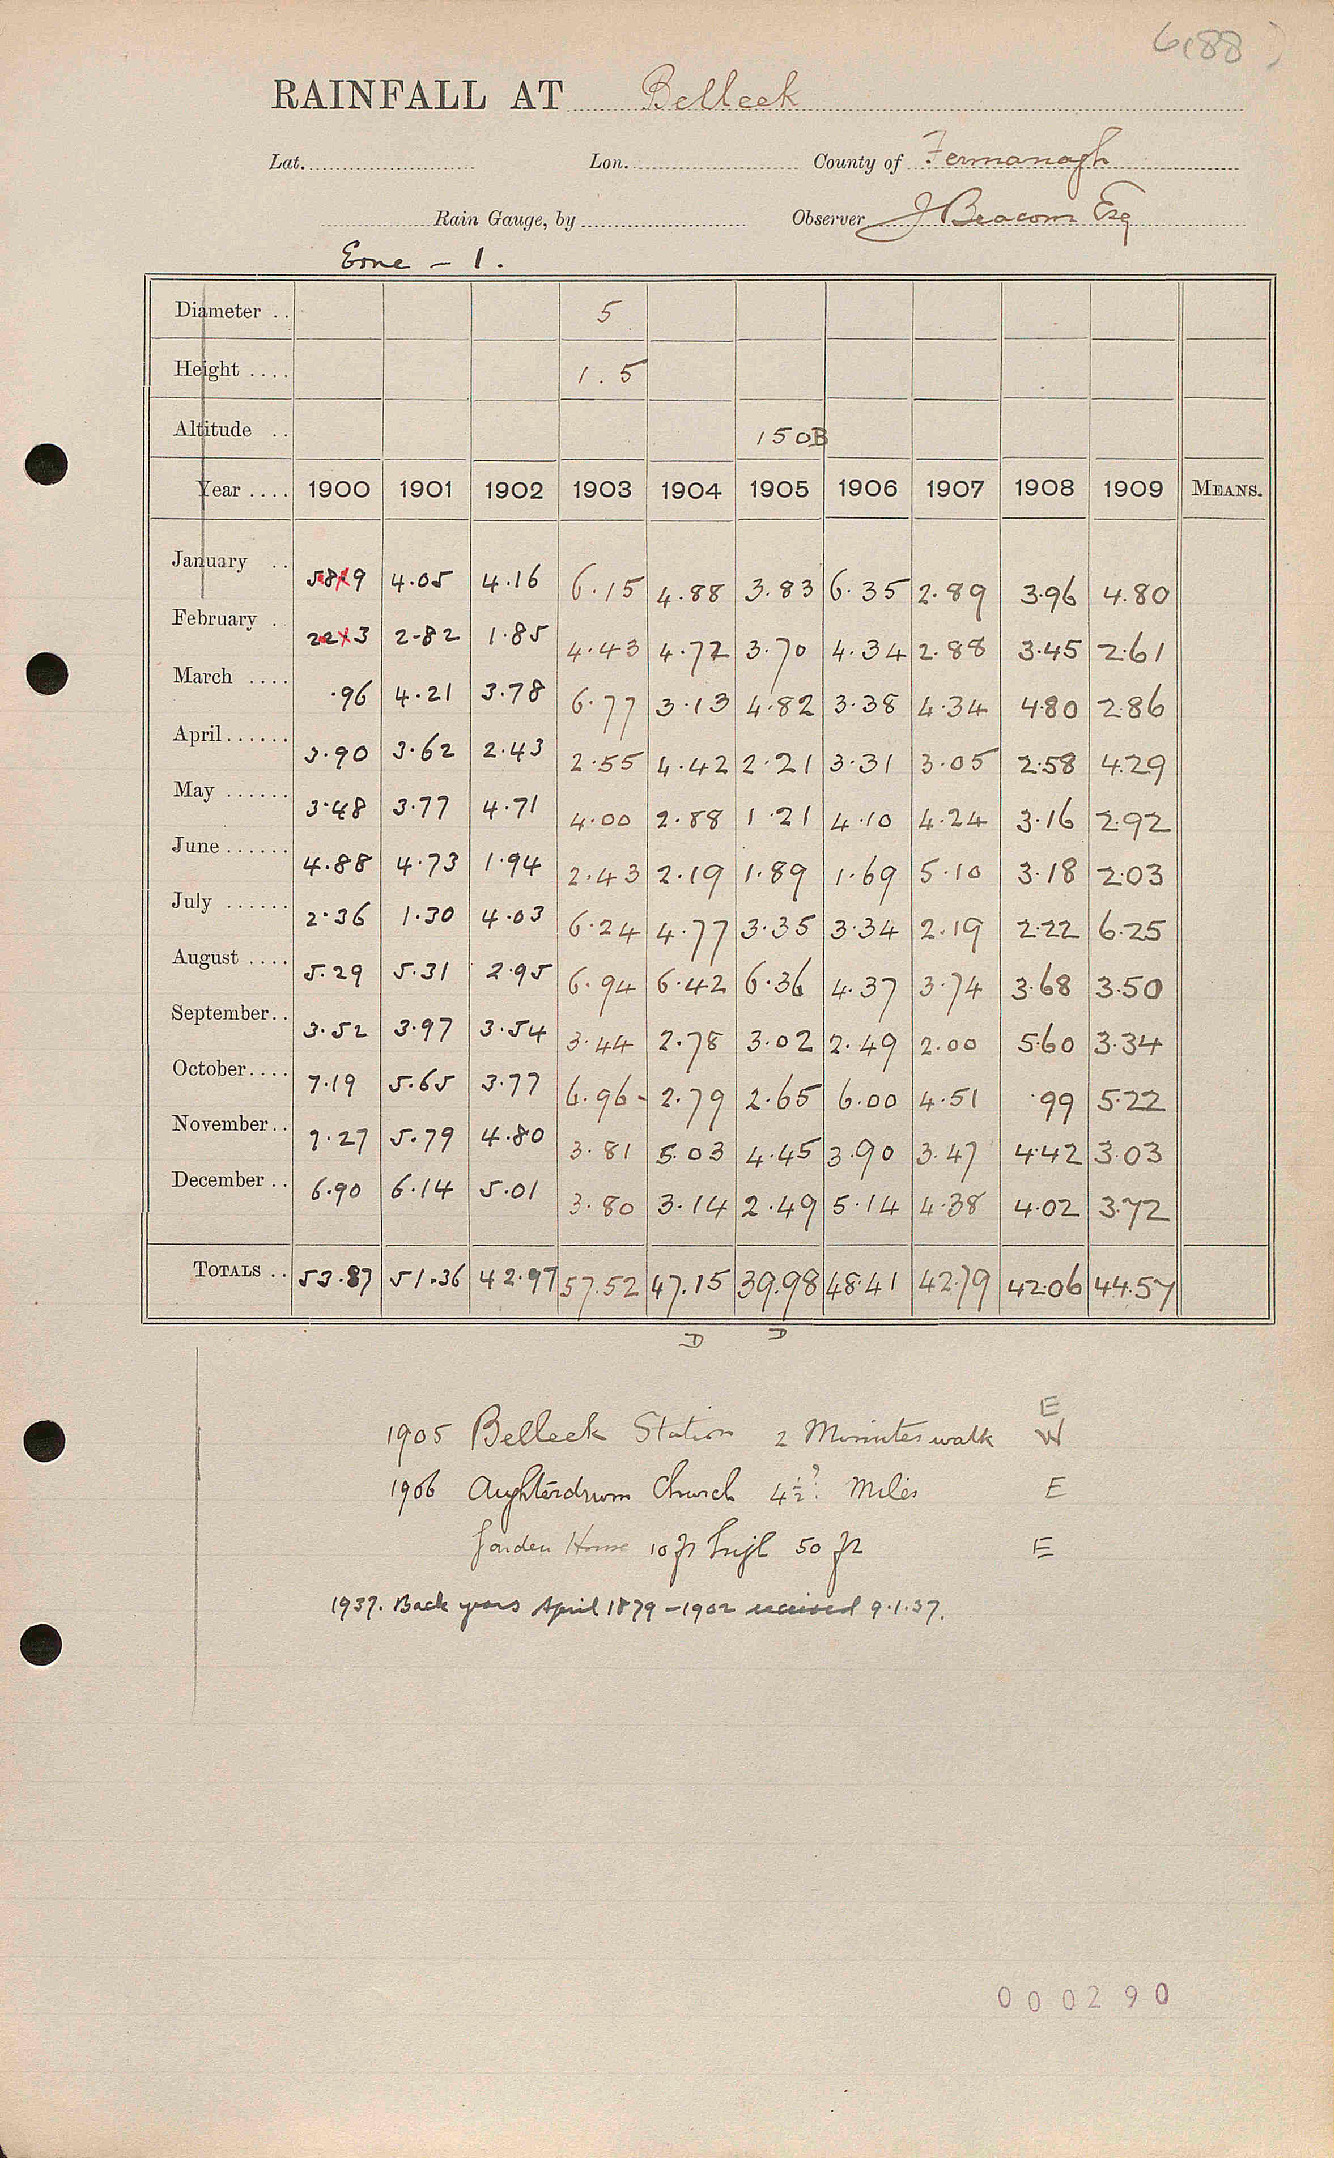 6188)
RAINFALL AT Belleek
Lat. Lon. County of Fermanagh
Rain Gauge, by Observer J Beacom Esq
Erne - 1.
Diameter .. 5
Height .... 1.5
Altitude .. 150B
Year .... 1900 1901 1902 1903 1904 1905 1906 1907 1908 1909 MEANS.
January .. 5.89 4.05 4.16 6.15 4.88 3.83 6.35 2.89 3.96 4.80
February . 2.23 2.82 1.85 4.43 4.72 3.70 4.34 2.88 3.45 2.61
March .... .96 4.21 3.78 6.77 3.13 4.82 3.38 4.34 4.80 2.86
April...... 3.90 3.62 2.43 2.55 4.42 2.21 3.31 3.05 2.58 4.29
May ...... 3.48 3.77 4.71 4.00 2.88 1.21 4.10 4.24 3.16 2.92
June ...... 4.88 4.73 1.94 2.43 2.19 1.89 1.69 5.10 3.18 2.03
July ...... 2.36 1.30 4.03 6.24 4.77 3.35 3.34 2.19 2.22 6.25
August .... 5.29 5.31 2.95 6.94 6.42 6.36 4.37 3.74 3.68 3.50
September.. 3.52 3.97 3.54 3.44 2.78 3.02 2.49 2.00 5.60 3.34
October.... 7.19 5.65 3.77 6.96 2.79 2.65 6.00 4.51 .99 5.22
November.. 7.27 5.79 4.80 3.81 5.03 4.45 3.90 3.47 4.42 3.03
December .. 6.90 6.14 5.01 3.80 3.14 2.49 5.14 4.38 4.02 3.72
TOTALS .. 53.87 51.36 42.97 57.52 47.15 39.98 48.41 42.79 42.06 44.57
D D
E
1905 Belleek Station 2 Minutes walk W
1906 Aughterdrum Church 4½? Miles E
Garden House 10 ft high 50 ft E
1937. Back years April 1879 - 1902 received 9.1.37.
000290